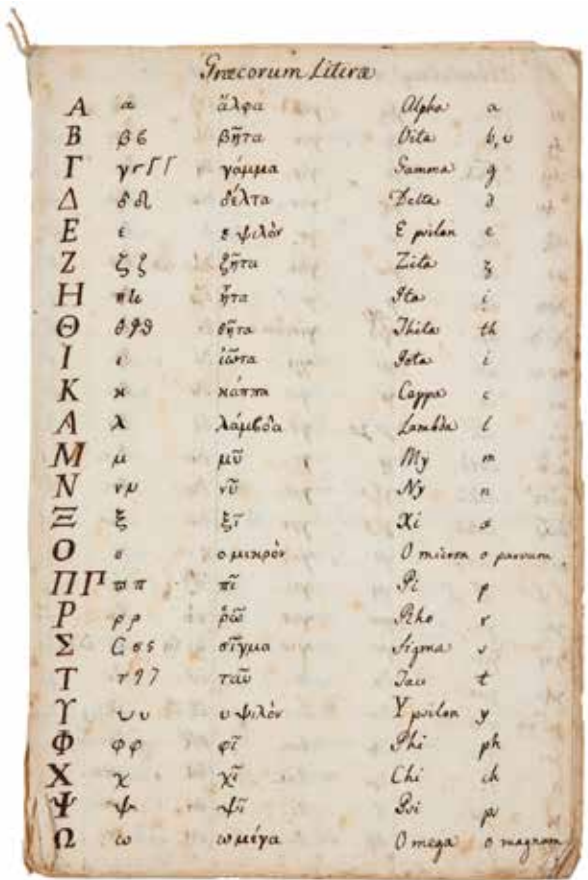 Græcorum Literæ
Α α ἄλφα Alpha a
Β β ϐ βῆτα Vita b, v
Γ γ γάμμα Gamma g
Δ δ δέλτα Delta d
Ε ε ε ψιλόν E psilon e
Ζ ζ ζ ζῆτα Zita z
Η η ἦτα Ita i
Θ θ ϑ θῆτα Thita th
Ι ι ἰῶτα Iota i
Κ κ κάππα Cappa c
Λ λ λάμβδα Lambda l
Μ μ μῦ My m
Ν ν νῦ Ny n
Ξ ξ ξῖ Xi
Ο ο ο μικρὸν O micron o parvum
Π Γ ϖ π πῖ Pi p
Ρ ρ ρ ῥῶ Rho r
Σ C σ ς σῖγμα Sigma s
Τ τ 7 ταῦ Tau t
Υ υ υ υ ψιλόν Y psilon y
Φ φ φ φῖ Phi ph
Χ χ χῖ Chi ch
Ψ ψ ψῖ Psi ps
Ω ω ω μέγα O mega o magnum